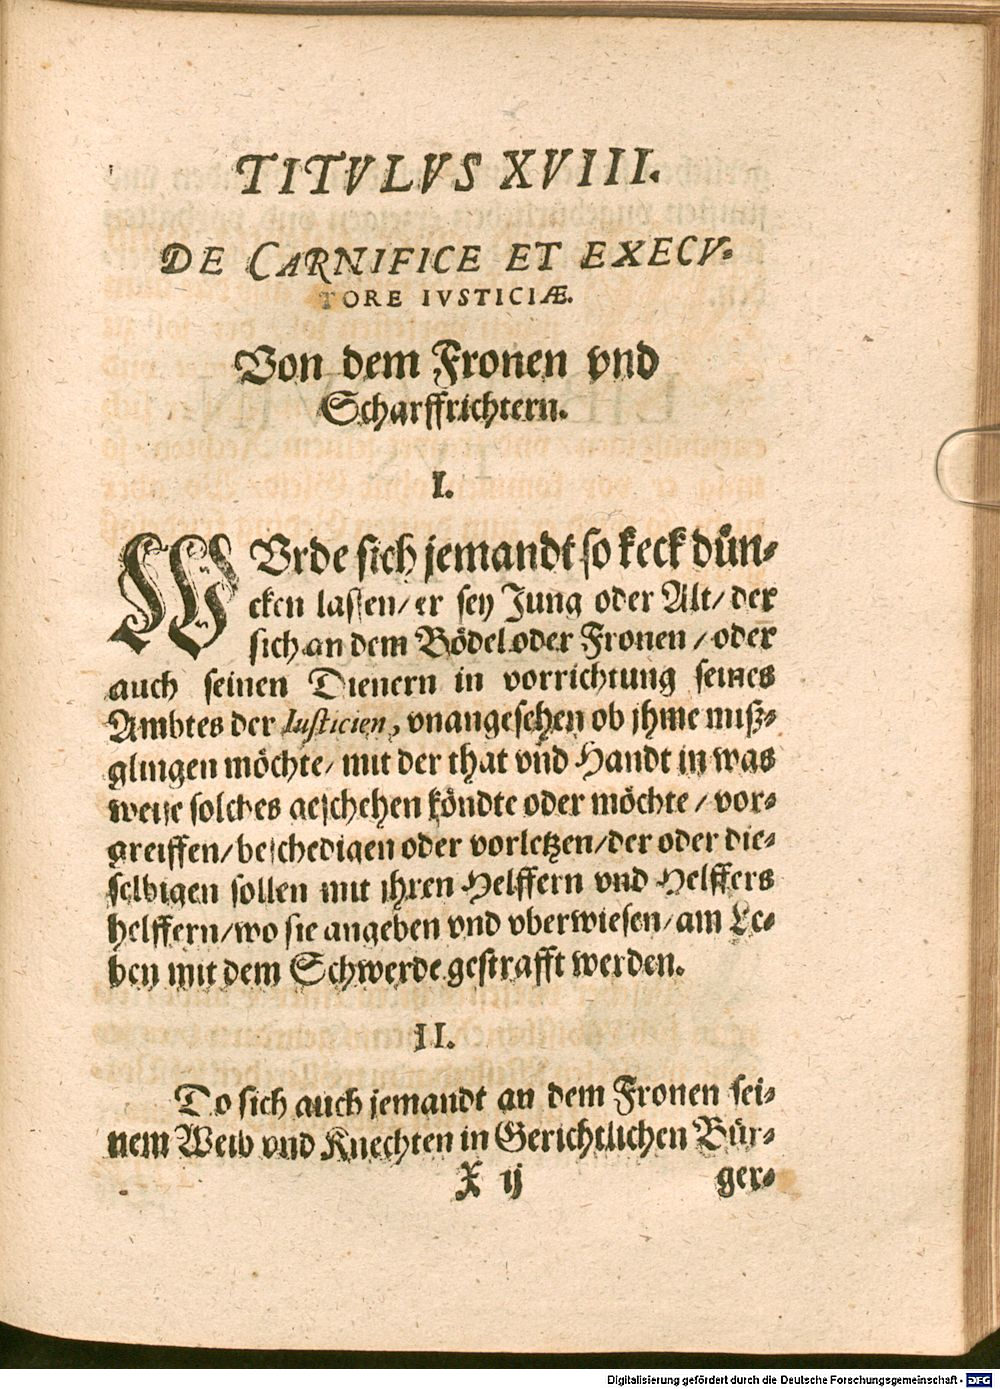 TITVLVS XVIII.
DE CARNIFICE ET EXECV-
TORE IVSTICIÆ.
Von dem Fronen vnd
Scharffrichtern.
I.
WVrde sich jemandt so keck dün-
cken lassen/ er sey Jung oder Alt/ der
sich an dem Bödel oder Fronen / oder
auch seinen Dienern in vorrichtung seines
Ambtes der Iusticien, vnangesehen ob jhme miß-
glingen möchte/ mit der that vnd Handt in was
weise solches geschehen köndte oder möchte / vor-
greiffen/ beschedigen oder vorletzen/ der oder die-
selbigen sollen mit jhren Helffern vnd Helffers
helffern/ wo sie angeben vnd vberwiesen/ am Le-
ben mit dem Schwerde gestrafft werden.
II.
Do sich auch jemandt an dem Fronen sei-
nem Weib vnd Knechten in Gerichtlichen Bür-
X ij ger-
Digitalisierung gefördert durch die Deutsche Forschungsgemeinschaft - DFG